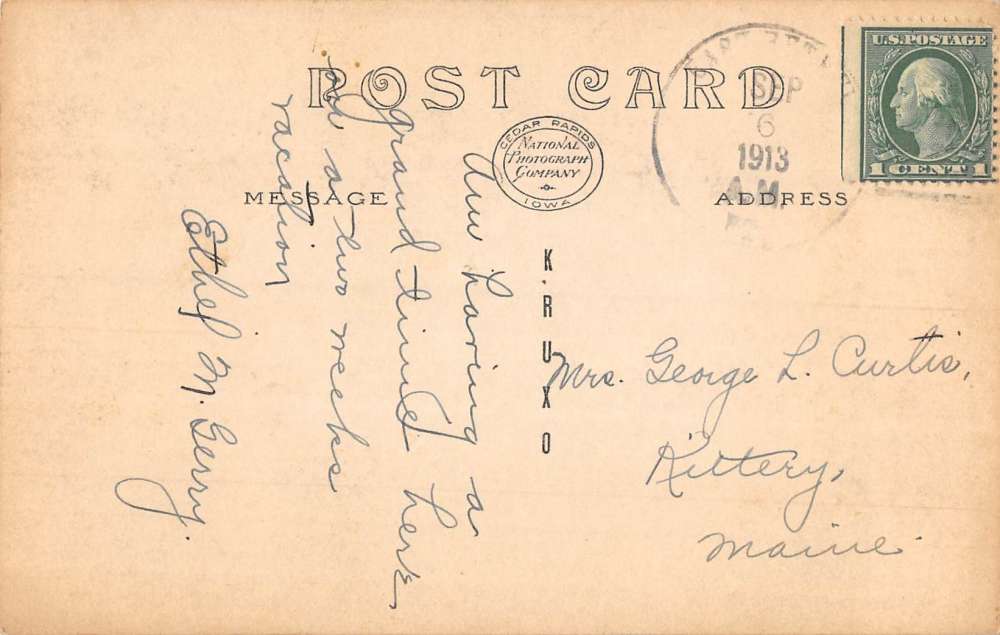 POST CARD
CEDAR RAPIDS
NATIONAL
PHOTOGRAPH
COMPANY
IOWA
MESSAGE
ADDRESS
SEP
6
1913
A.M.
U.S. POSTAGE
1 CENT 1
KRUXO
Am having a
grand time here
on a two weeks
vacation
Ethel M. Gerry.
Mrs. George L. Curtis,
Kittery,
Maine.